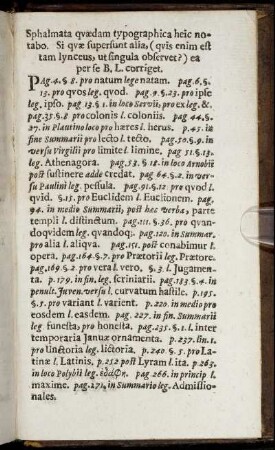 Sphalmata quædam typographica heic no-
tabo. Si quæ supersunt alia, (quis enim est
tam lynceus, ut singula observet?) ea
per se B. L. corriget.
PAg. 4. §. 8. pro natum lege natam. pag. 6. §.
13. pro quos leg. quod. pag. 9. §. 23. pro ipse
leg. ipso. pag 13. §. 1. in loco Servii, pro ex leg. &.
pag. 35. §. 8 pro colonis l. coloniis. pag 44. §.
27. in Plautino loco pro hæres l. herus. p. 45. in
fine Summarii pro lecto l. tecto. pag. 50. §. 9. in
versu Virgilii pro limite l. limine. pag 51. §. 13.
leg. Athenagora. pag. 53. §. 18. in loco Arnobii
post sustinere adde credat. pag 64. §. 2. in ver-
su Paulini leg. pessula. pag. 91. §. 12 pro quod l.
quid. §. 15. pro Euclidem l. Euclionem. pag.
94. in medio Summarii, post hæc verba, parte
templi l. distinctum. pag. 111. §. 36. pro quan-
doquidem leg. quandoq;. pag. 120. in Summar.
pro alia l. aliqua. pag. 151. post conabimur l.
opera. pag. 164. §. 7. pro Prætorii leg. Prætore.
pag. 169. §. 2. pro vera l. vero. §. 3. l. Jugamen-
ta. p. 179. in fin. leg. scriniarii. pag. 183. §. 4. in
penult. Juven. versu l. curvatum hastile. p. 195.
§. 5. pro variant l. varient. p. 220. in medio pro
eosdem l. easdem. pag. 227. in fin. Summarii
leg funesta, pro honesta. pag. 235. §. 1. l. inter
temporaria Januæ ornamenta. p. 237. lin. 1.
pro unctoria leg. lictoria. p. 240. §. 5. pro La-
tinæ l. Latinis. p. 252 post Lyram l. ita. p. 263.
in loco Polybii leg. pag. 266. in princip l.
maxime. pag. 271. in Summario leg. Admissio-
nales.